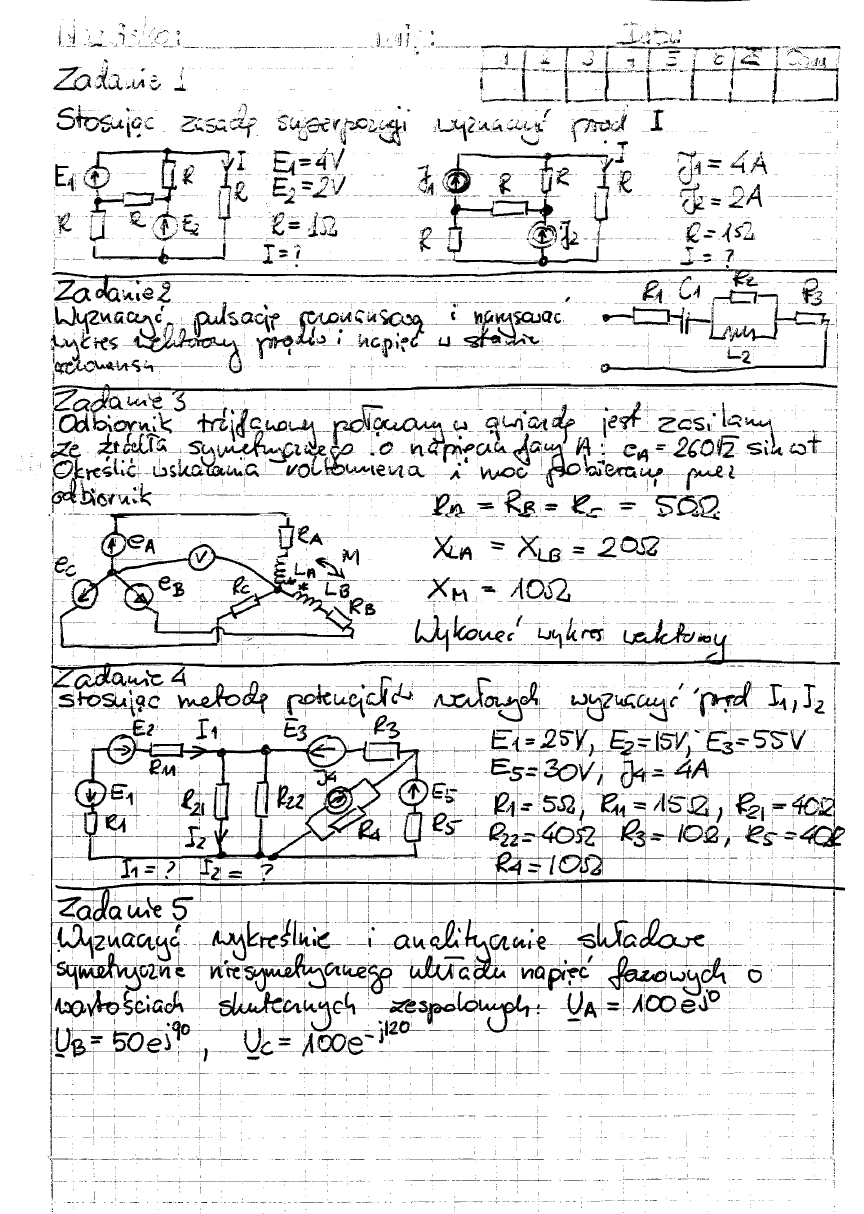 Nazwisko: Imię: Data:
1 2 3 4 5 6
Zadanie 1
Stosując zasadę superpozycji wyznaczyć prąd I
E1 R I R R R E2
E1=4V
E2=2V
R=1Ω
I=?
J1 R R I R R J2
J1=4A
J2=2A
R=1Ω
I=?
Zadanie 2
Wyznaczyć pulsację rezonansową i narysować
wykres wektorowy prądów i napięć w stanie
rezonansu
R1 C1 R2 R3
L2
Zadanie 3
Odbiornik trójfazowy połączony w gwiazdę jest zasilany
ze źródła symetrycznego o napięciu fazy A: eA=260√2 sin ωt
Określić wskazania voltomierza i moc pobieraną przez
odbiornik
RA = RB = RC = 50Ω
XLA = XLB = 20Ω
XM = 10Ω
Wykonać wykres wektorowy
eA RA V M LA LB eC eB RC * * RB
Zadanie 4
stosując metodę potencjałów węzłowych wyznaczyć prąd I1, I2
E2 I1 E3 R3
R11 J4
E1 R21 R22 E5
R1 I2 R4 R5
I1=? I2=?
E1=25V, E2=15V, E3=55V
E5=30V, J4=4A
R1=5Ω, R11=15Ω, R21=40Ω
R22=40Ω R3=10Ω, R5=40Ω
R4=10Ω
Zadanie 5
Wyznaczyć wykreślnie i analitycznie składowe
symetryczne niesymetrycznego układu napięć fazowych o
wartościach skutecznych zespolonych: UA = 100ej0
UB = 50ej90, UC = 100e-j120